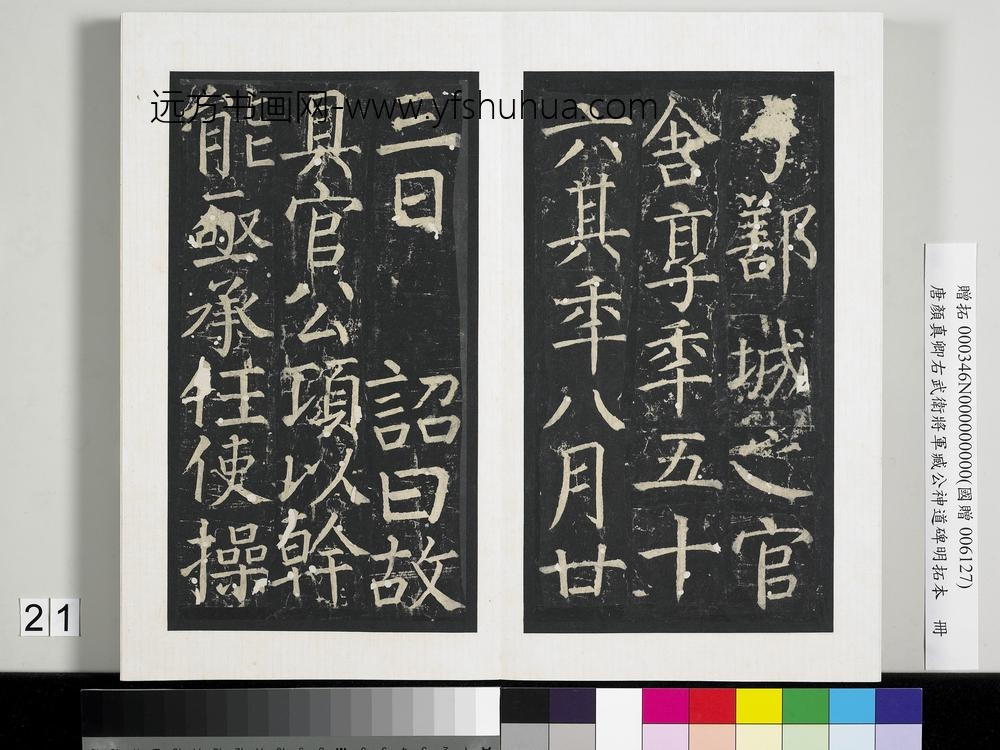 于鄯城之官
舍享秊五十
六其秊八月廿
三日 詔曰故
具官公頃以幹
能亟承任使操
远方书画网-www.yfshuhua.com
贈拓 000346N000000000(國贈 006127)
唐顏真卿右武衛將軍臧公神道碑明拓本 冊
21